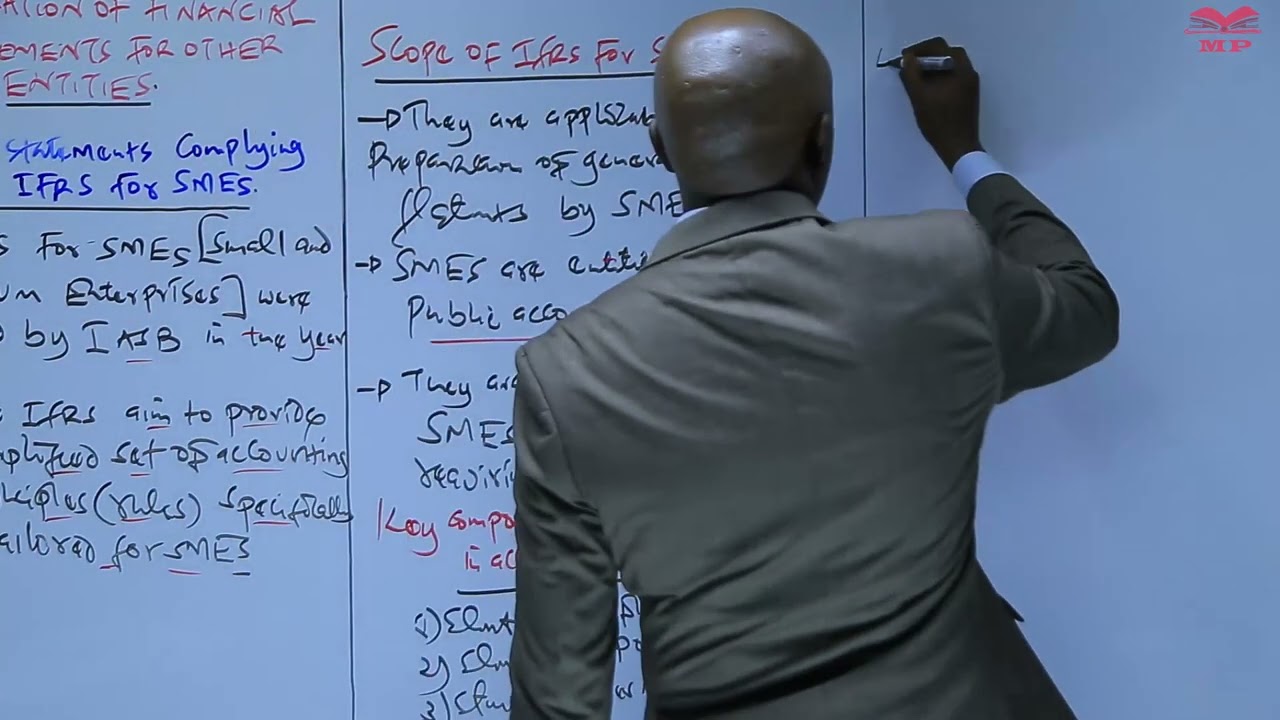 ATION OF FINANCIAL
EMENTS FOR OTHER
ENTITIES.
Statements Complying
IFRS FOR SMES.
S FOR SMES [Small and
um Enterprises] were
by IASB in the year
IFRS aim to provide
set of accounting
(rules) specifically
ailored for SMES
SCOPE OF IFRS FOR S
They are
Preparation of genera
by SME
SMES are entiti
Public acco
They are
SMES
requiri
Key compo
in ac
1)
2)
3)
MP